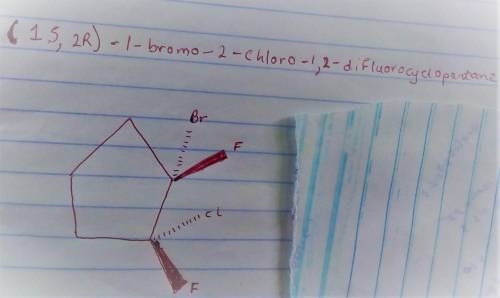 (1S, 2R) - 1 - bromo - 2 - chloro - 1,2 - difluorocyclopentane
Br
F
Cl
F